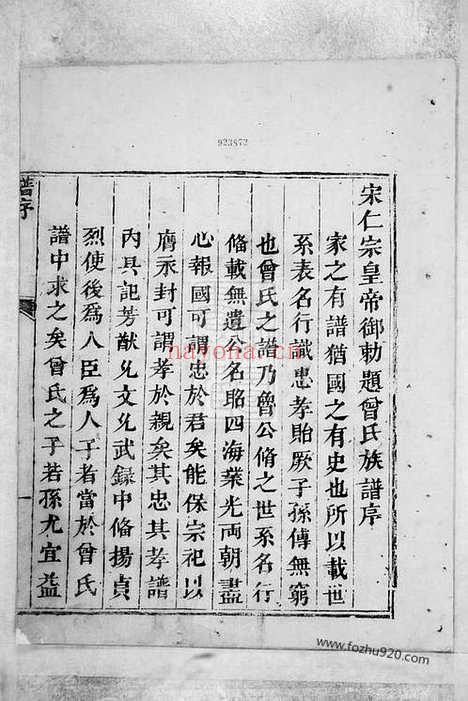 923872
宋仁宗皇帝御勅題曾氏族譜序
家之有譜猶國之有史也所以載世
系表名行識忠孝貽厥子孫傳無窮
也曾氏之譜乃魯公脩之世系名行
脩載無遺公名昭四海業光両朝盡
心報國可謂忠於君矣能保宗祀以
膺承封可謂孝於親矣其忠其孝譜
內具記芳猷允文允武録中脩揚貞
烈使後爲人臣爲人子者當於曾氏
譜中求之矣曾氏之子若孫尤宜益
譜序
nayona.cn
www.fozhu920.com